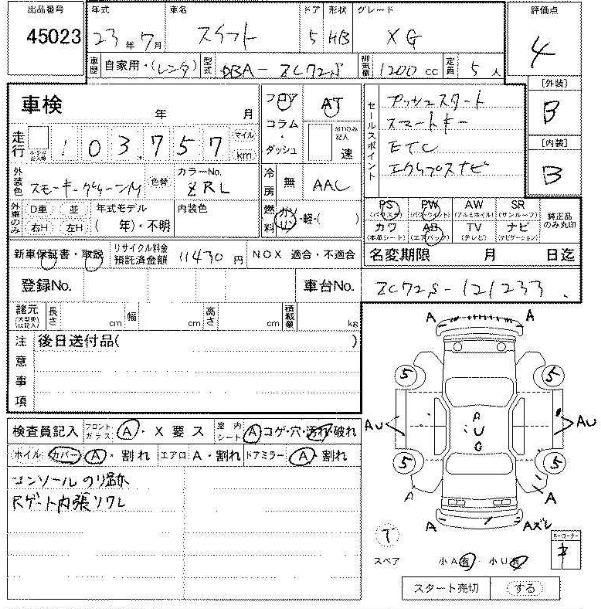 出品番号 45023
年式 23年7月
車名 スイフト
ドア 5
形状 HB
グレード XG
評価点 4
車歴 自家用・(レンタ)
型式 DBA-ZC72S
排気量 1200cc
定員 5人
〔外装〕 B
〔内装〕 B
車検 年 月
走行 103,757 マイル km
フロア コラム・ダッシュ
AT 速
セールスポイント
プッシュスタート
スマートキー
ETC
エクリプスナビ
外装色 スモーキーグリーンM 色替
カラーNo. ZRL
冷房 無 AAC
外車のみ D車 並 右H 左H
年式モデル ( 年)・不明
内装色
燃料 ガソリン・軽・( )
PS (パワステ) PW (パワーウインド) AW (アルミホイル) SR (サンルーフ) 純正品のみ丸印
カワ (本革シート) AB (エアバック) TV (テレビ) ナビ (ナビゲーション)
新車保証書・取説
リサイクル料金預託済金額 11430円
NOX 適合・不適合
名変期限 月 日迄
登録No.
車台No. ZC72S-121233
諸元 長さ cm 幅 cm 高さ cm 積載量 kg
注意事項
後日送付品( )
検査員記入 フロントガラス A・X要ス 室内シート A コゲ・穴・汚れ・破れ
ホイル カバー A・割れ エアロ A・割れ ドアミラー A・割れ
コンソール のり跡
Rゲート内張リワレ
A A
5 5
AU AUG AU
5 5
A A
A Aズレ
T
スペア 小A有・小U有
スタート売切 する